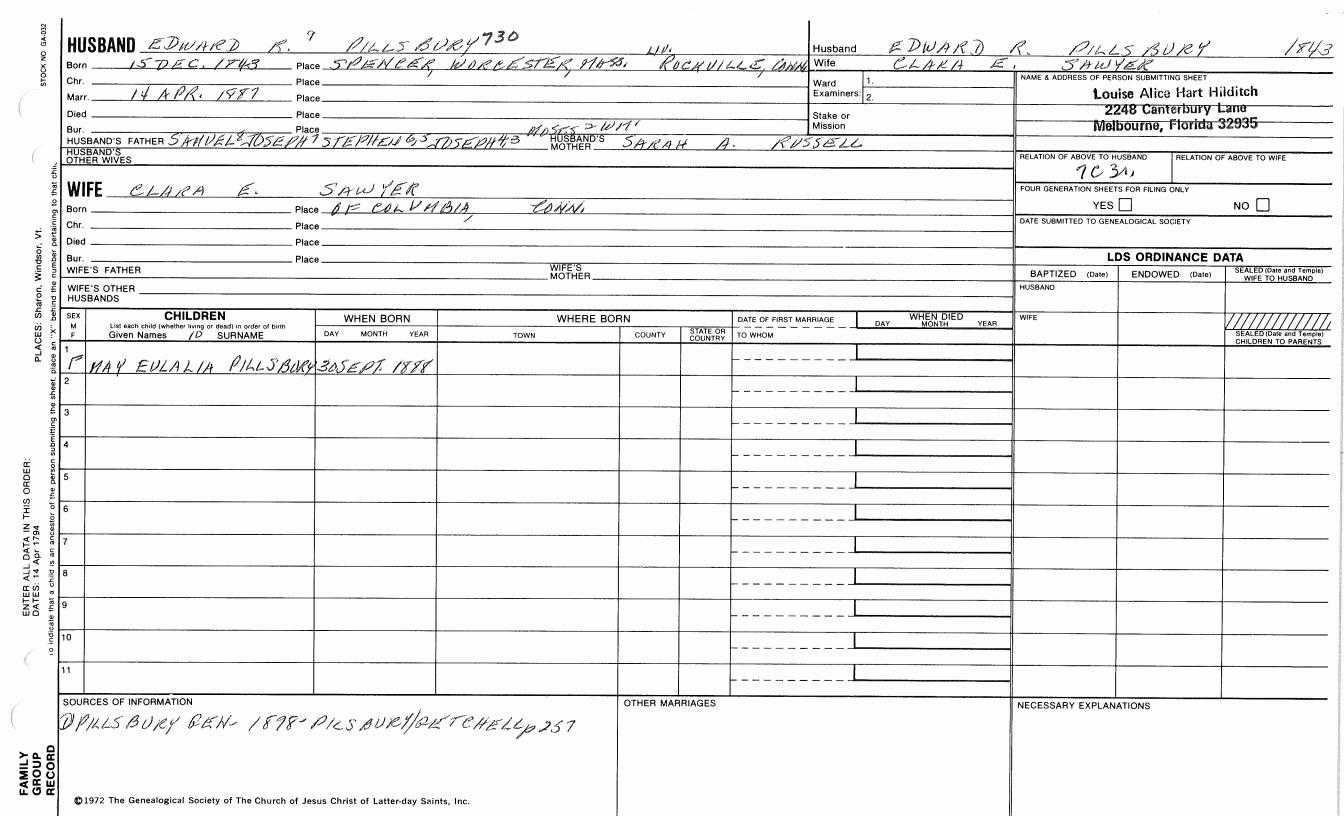 STOCK NO GA-032
HUSBAND EDWARD R. 9 PILLSBURY 730
Born 15 DEC. 1843 Place SPENCER, WORCESTER, MASS. LIV. ROCKVILLE, CONN.
Chr. Place
Marr. 14 APR. 1887 Place
Died Place
Bur. Place
HUSBAND'S FATHER SAMUEL 8 JOSEPH 7 STEPHEN 6,5 JOSEPH 4,3 MOSES 2 WM 1 HUSBAND'S MOTHER SARAH A. RUSSELL
HUSBAND'S OTHER WIVES
Husband EDWARD R. PILLSBURY 1843
Wife CLARA E. SAWYER
Ward 1.
Examiners: 2.
Stake or Mission
NAME & ADDRESS OF PERSON SUBMITTING SHEET
Louise Alice Hart Hilditch
2248 Canterbury Lane
Melbourne, Florida 32935
RELATION OF ABOVE TO HUSBAND RELATION OF ABOVE TO WIFE
7C 3R
FOUR GENERATION SHEETS FOR FILING ONLY
YES NO
DATE SUBMITTED TO GENEALOGICAL SOCIETY
WIFE CLARA E. SAWYER
Born Place OF COLUMBIA, CONN.
Chr. Place
Died Place
Bur. Place
WIFE'S FATHER WIFE'S MOTHER
WIFE'S OTHER HUSBANDS
LDS ORDINANCE DATA
BAPTIZED (Date) ENDOWED (Date) SEALED (Date and Temple) WIFE TO HUSBAND
HUSBAND
WIFE
SEALED (Date and Temple) CHILDREN TO PARENTS
SEX M F
CHILDREN
List each child (whether living or dead) in order of birth
Given Names 10 SURNAME
WHEN BORN
DAY MONTH YEAR
WHERE BORN
TOWN COUNTY STATE OR COUNTRY
DATE OF FIRST MARRIAGE
TO WHOM
WHEN DIED
DAY MONTH YEAR
1 F MAY EULALIA PILLSBURY 30 SEPT. 1888
2
3
4
5
6
7
8
9
10
11
SOURCES OF INFORMATION
1) PILLSBURY GEN- 1898- PILSBURY/GETCHELL p 257
OTHER MARRIAGES
NECESSARY EXPLANATIONS
©1972 The Genealogical Society of The Church of Jesus Christ of Latter-day Saints, Inc.
PLACES: Sharon, Windsor, Vt.
ENTER ALL DATA IN THIS ORDER:
DATES: 14 Apr 1794
To indicate that a child is an ancestor of the person submitting the sheet, place an "X" behind the number pertaining to that chil
FAMILY
GROUP
RECORD